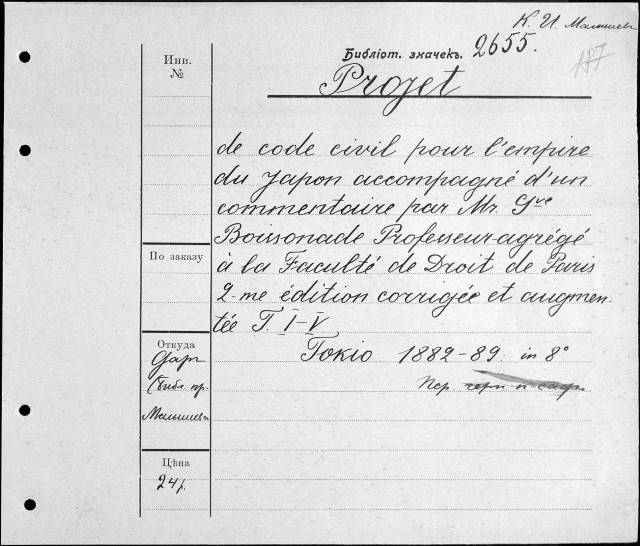 К. И. Малышев
Библіот. значекъ. 2655.
187
Projet
Инв.
№
de code civil pour l'empire
du Japon accompagné d'un
commentaire par Mr. Gve
Boissonade Professeur-agrégé
à la Faculté de Droit de Paris
2-me édition corrigée et augmen-
tée T. I-V
Tokio 1882-89. in 8°
По заказу
Откуда
Даръ
Библ. пр.
Малышева
Цѣна
24 р.